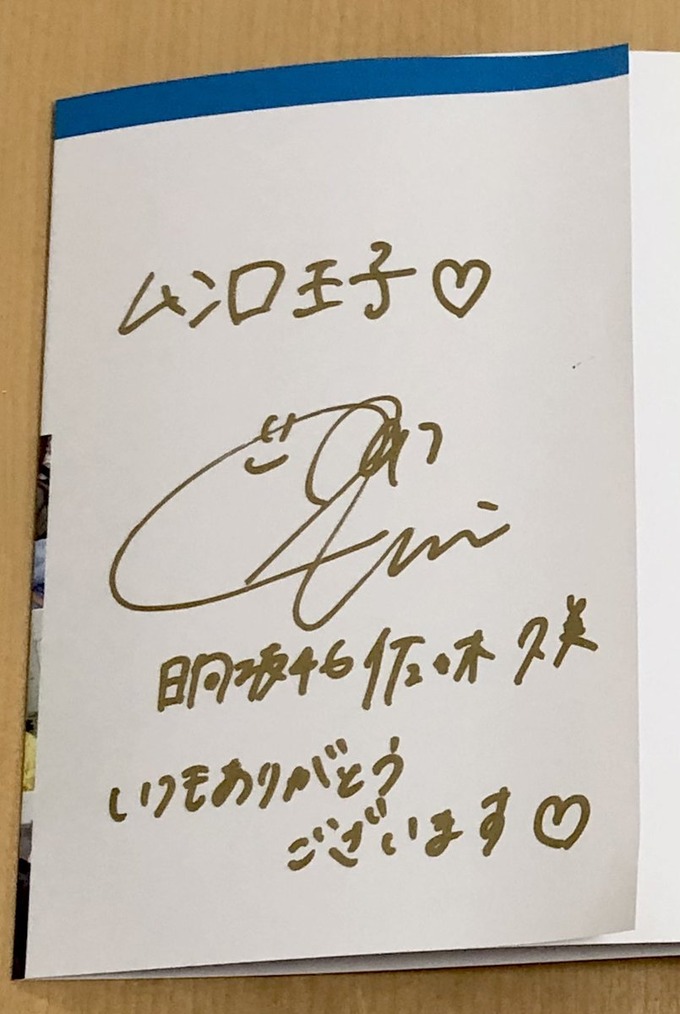 ムンロ王子♡
日向坂46 佐々木久美
いつもありがとう
ございます♡